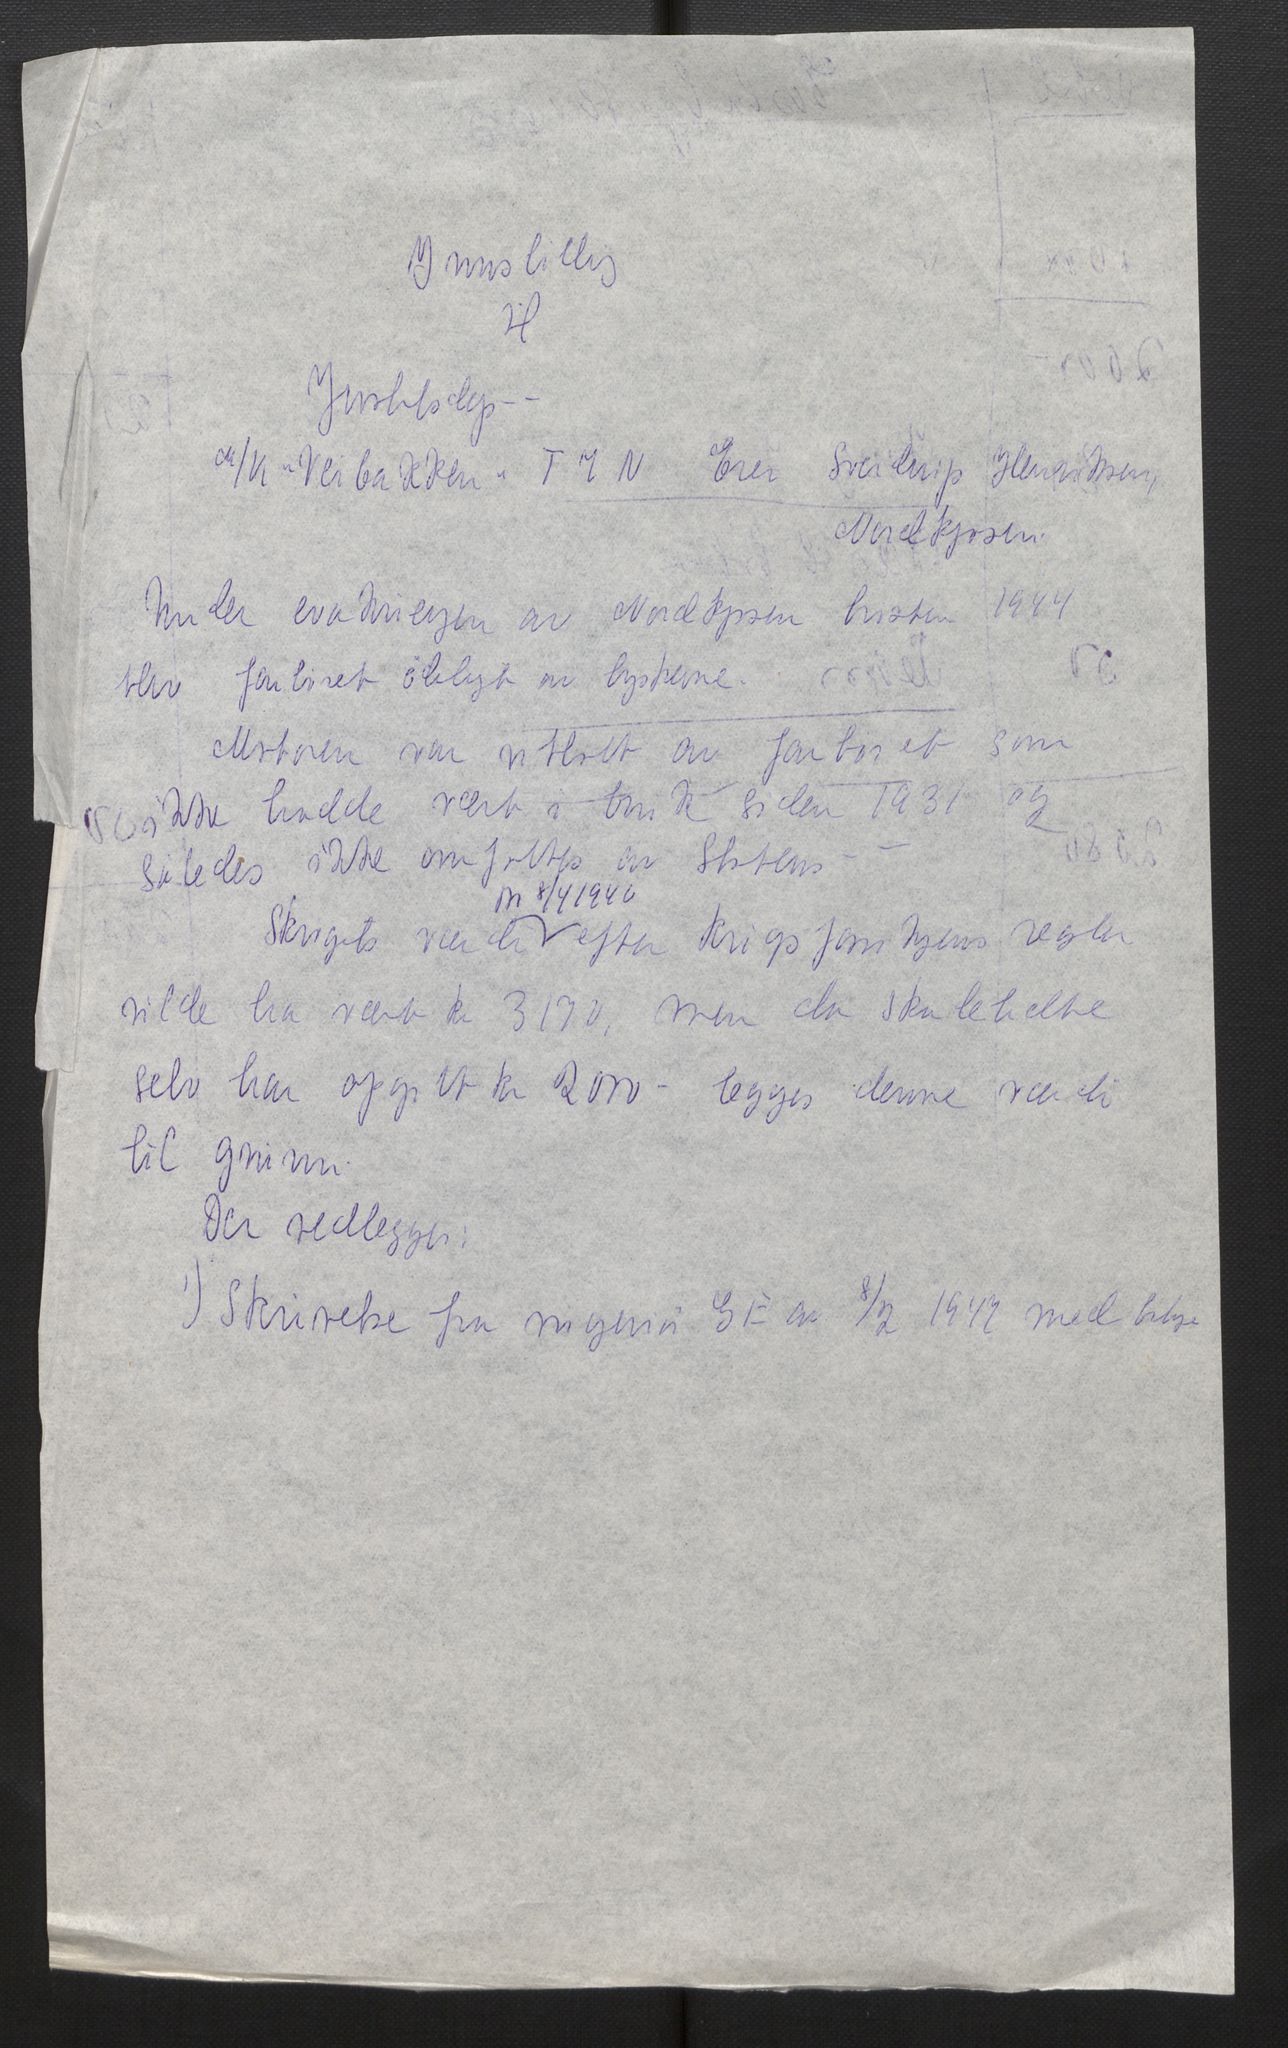 Innstilling
til
Justisdep--
M/K "Veibakken" T 7 N Eier Sverdrup Henriksen,
Nordkjosen.
Under evakuergen av Nordkjosen høsten 1944
blev fartøiet ødelagt av tyskerne.
Motoren var uttatt av fartøiet som
ikke hadde vært i bruk siden 1931 og
således ikke omfattes av Statens--
pr 8/4 1940
Skrogets verdi efter krigsforsikrgens regler
vilde ha vært kr 3170, men da skadelidte
selv har opgitt kr 2000- legges denne verdi
til grunn.
Der vedlegges:
1) Skrivelse fra ingeniør GE av 8/2 1947 med bilge